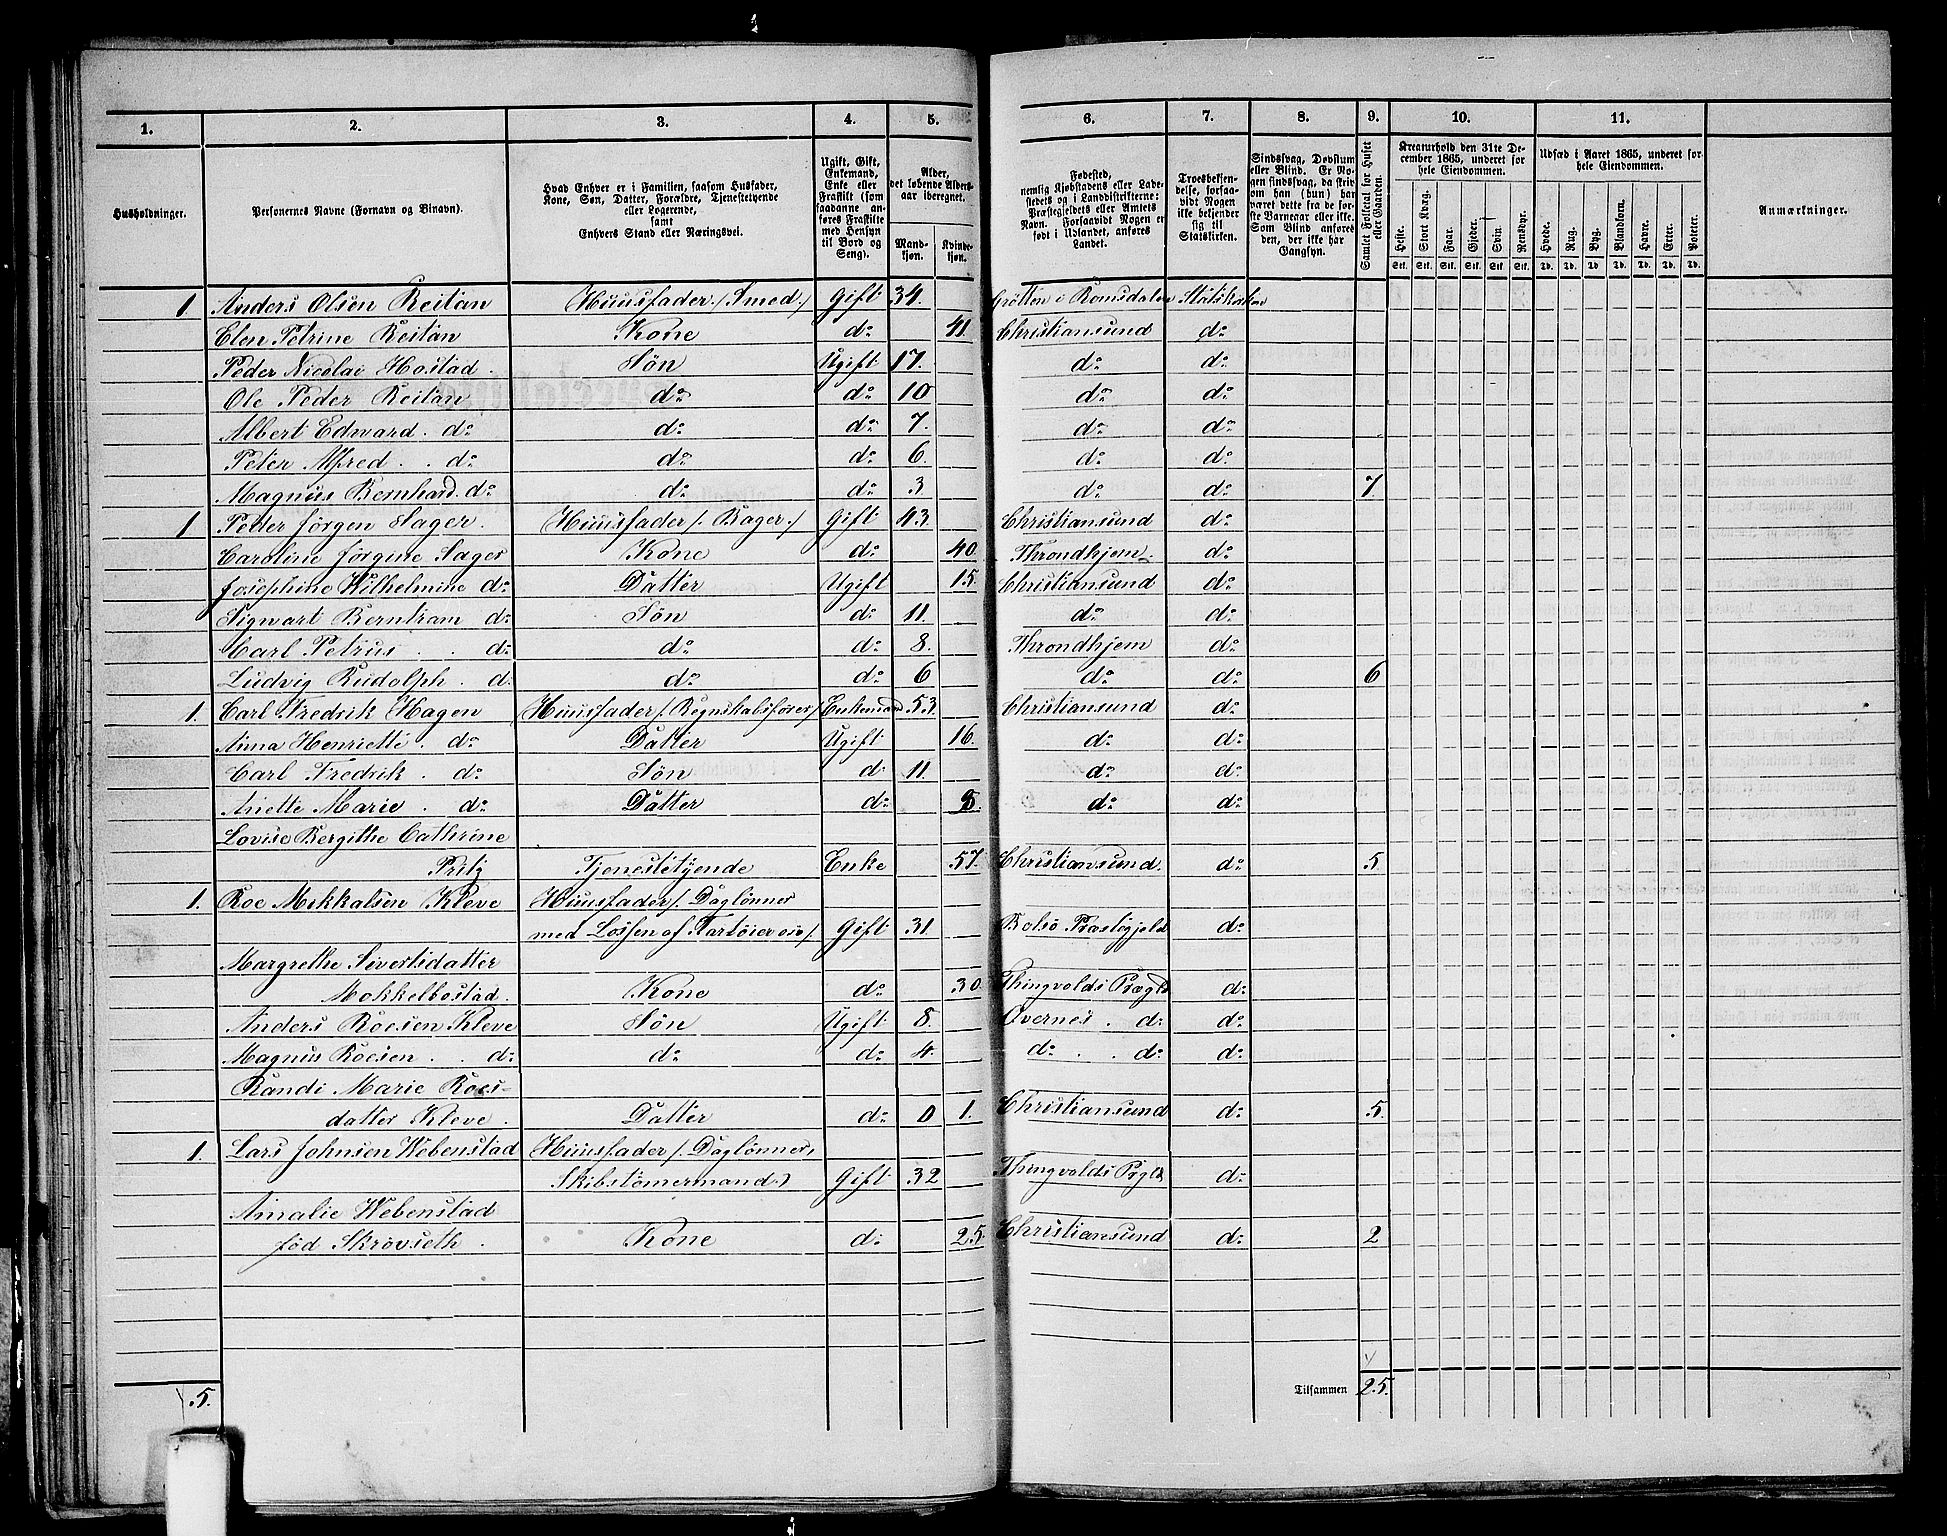 1. 2. 3. 4. 5. 6. 7. 8. 9. 10. 11.
Husholdninger.
Personernes Navne (Fornavn og Binavn).
Hvad Enhver er i Familien, saasom Husfader,
Kone, Søn, Datter, Forældre, Tjenestetyende
eller Logerende,
samt
Enhvers Stand eller Næringsvei.
Ugift, Gift,
Enkemand,
Enke eller
Fraskilt (som
saadanne an-
føres Fraskilte
med Hensyn
til Bord og
Seng).
Alder,
det løbende Alders-
aar iberegnet.
Mand-
kjøn.
Kvinde-
kjøn.
Fødested,
nemlig Kjøbstadens eller Lade-
stedets og i Landdistrikterne:
Præstegjeldets eller Amtets
Navn. Forsaavidt Nogen er
født i Udlandet, anføres
Landet.
Troesbekjen-
delse, forsaa-
vidt Nogen
ikke bekjender
sig til
Statskirken.
Sindssvag, Døvstum
eller Blind. Er No-
gen sindssvag, da skriv
om han (hun) har
været dette fra de før-
ste Barneaar eller ikke.
Som Blind anføres
den, der ikke har
Gangsyn.
Samlet Folketal for Huset
eller Gaarden.
Kreaturhold den 31te De-
cember 1865, underet for
hele Eiendommen.
Heste. Stort Kvæg. Faar. Gjeder. Svin. Rensdyr.
Stk. Stk. Stk. Stk. Stk. Stk.
Udsæd i Aaret 1865, underet for
hele Eiendommen.
Hvede. Rug. Byg. Blandkorn. Havre. Erter. Poteter.
Td. Td. Td. Td. Td. Td. Td.
Anmærkninger.
1 Anders Olsen Reitan Huusfader /Smed/ Gift 34. Grötten i Romsdalen Statskirken
Elen Petrine Reitan Kone do 41 Christiansund do
Peder Nicolai Hostad. Søn Ugift 17. do do
Ole Peder Reitan do do 10 do do
Albert Edward. do do do 7. do do
Peter Alfred . . do do do 6. do do
Magnus Bernhard. do do do 3 do do 7.
1 Peder Jørgen Sager. Huusfader /Bager/ Gift 43. Christiansund do
Caroline Jørgine Sager Kone do 40. Throndhjem. do
Josephine Wilhelmine do Datter Ugift 15. Christiansund do
Sigvart Berntram do Søn do 11. do do
Carl Petrus . . do do do 8. Throndhjem do
Ludvig Rudolph. d. do do 6 do do 6
1. Carl Fredrik Hagen /Huusfader /Regnskabsfører/ Enkemand 53. Christiansund do
Anna Henriette. do Datter Ugift 16. do do
Carl Fredrik. do Søn d. 11. do do
Aniette Marie. do Datter do do do
Lovise Bergithe Cathrine
Fritz Tjenestetyende Enke 57. Christiansund. do 5
1. Roe Mikkalsen Kleve Huusfader /Daglønner
med Lossen af Fartøier osv/ Gift 31. Bolsø Præstegjeld do
Margrethe Sivertsdatter
Mokkelbostad. Kone do 30. Thingvolds Prægld do
Anders Roesen Kleve Søn Ugift 8. Overnes. d. do
Magnus Roesen . . do do do 4. do . . do do
Randi Marie Roes-
datter Kleve. Datter do 0 1. Christiansund do 5.
1. Lars Johnsen Webenstad Huusfader /Daglønner,
Skibstømermand.) Gift 32 Thingvolds Prgld do
Amalie Webenstad
fød Skrøvseth. Kone d. 25. Christiansund do 2
5. Tilsammen 25.